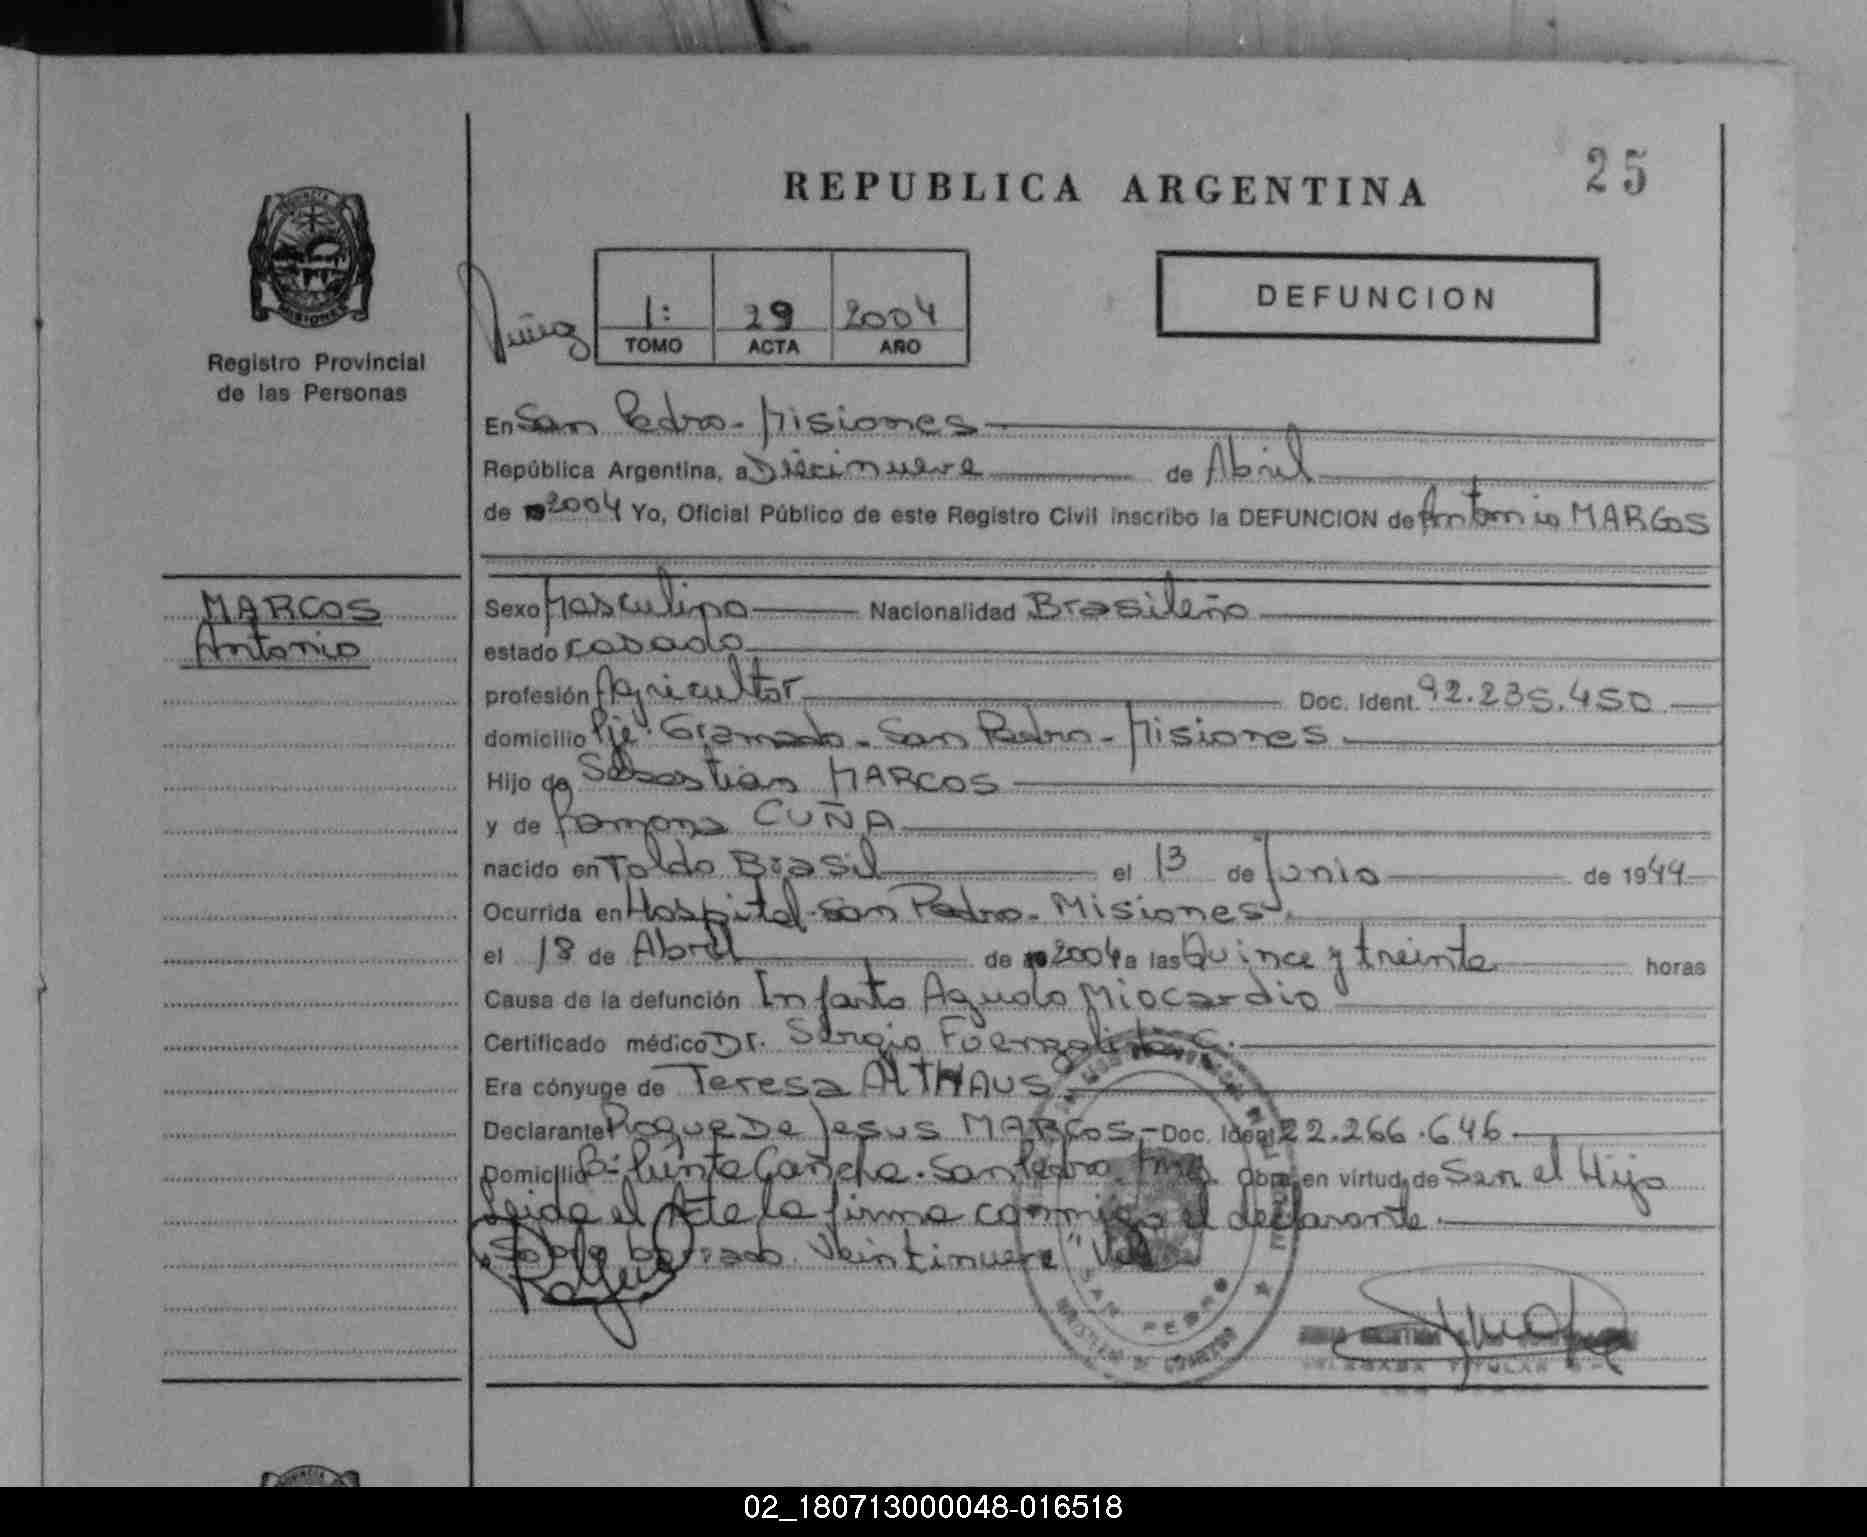 25
REPUBLICA ARGENTINA
DEFUNCION
1: 29 2004
TOMO ACTA AÑO
PROVINCIA
MISIONES
Registro Provincial
de las Personas
En San Pedro - Misiones
República Argentina, a Diecinueve de Abril
de 2004 Yo, Oficial Público de este Registro Civil inscribo la DEFUNCION de Antonio MARCOS
MARCOS
Antonio
Sexo Masculino Nacionalidad Brasileño
estado casado
profesión Agricultor Doc. Ident. 92.235.450
domicilio Pje. Gramado - San Pedro - Misiones
Hijo de Sebastian MARCOS
y de Ramona CUÑA
nacido en Toldo Brasil el 13 de Junio de 1944
Ocurrida en Hospital - San Pedro - Misiones
el 18 de Abril de 2004 a las Quince y treinta horas
Causa de la defunción Infarto Agudo Miocardio
Certificado médico Dr. Sergio C.
Era cónyuge de Teresa ALTHAUS
Declarante Roque De Jesus MARCOS - Doc. Ident 22.266.646
Domicilio Bº Punta Cancha - San Pedro - Mnes. Obra en virtud de Ser el Hijo
Leida el Acta la firma conmigo el declarante
"Sobre borrado. Veintinueve" Vale
SAN PEDRO
TITULAR
02_180713000048-016518